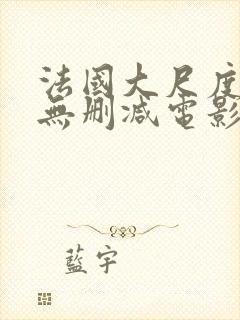 法國大尺度
無刪減電影
藍宇